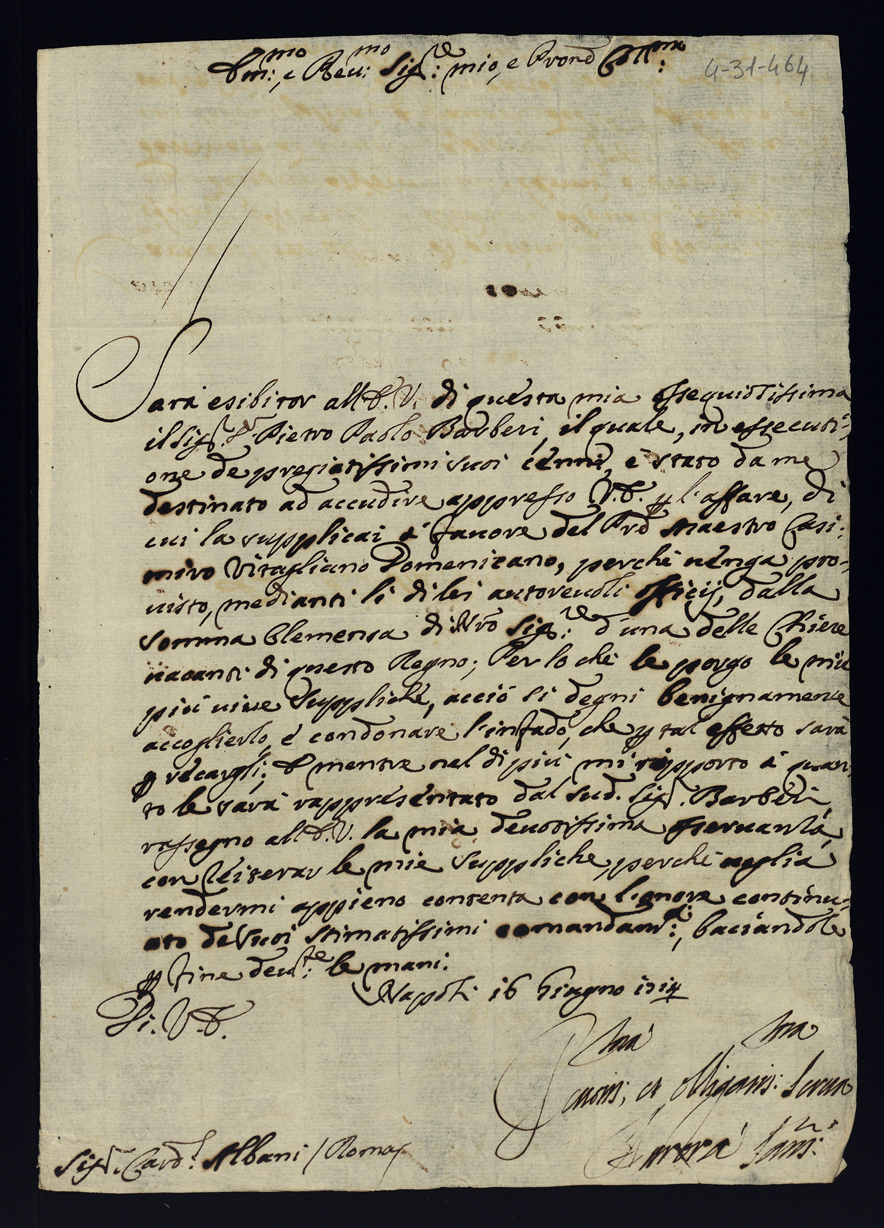 Em:mo, e Reu:mo Sig:re mio, e Pron Coll:mo
4-31-464
Sarà esibitor all'E.V. di questa mia ossequiosissima
il Sig.r D. Pietro Paolo Barberi, il quale, in essecuti-
one de pregiatissimi suoi cenni, è stato da me
destinato ad accudire appresso V.E. p l'affare, di
cui la supplicai à fauore del Prd Maestro Casi:
miro Vitagliano Domenicano, perchè uenga pro-
uisto, medianti li di lei autoreuoli officij, dalla
somma Clemenza di Nro Sig:re d'una delle Chiese
uacanti di questo Regno; Per lo che le porgo le mie
più uiue suppliche, acciò si degni benignamente
accoglierlo, è condonare l'infado, che p tal effetto sarà
p recargli; E mentre nel di più mi rapporto à quan-
to le sarà rappresentato dal sud. Sig.r Barberi,
rassegno all'E.V. la mia deuotissima seruantà,
con reiterar le mie suppliche, perchè uoglia
rendermi appieno contenta con l'onore continu-
ato de suoi stimatissimi comandam:ti, baciandole
p fine deu:te le mani.
Napoli 16 Giugno 1714
Di. V.E.
Sig.r Card.l Albani / Roma
Deuotis:, et obligatis: Serua
Aurora Sans: